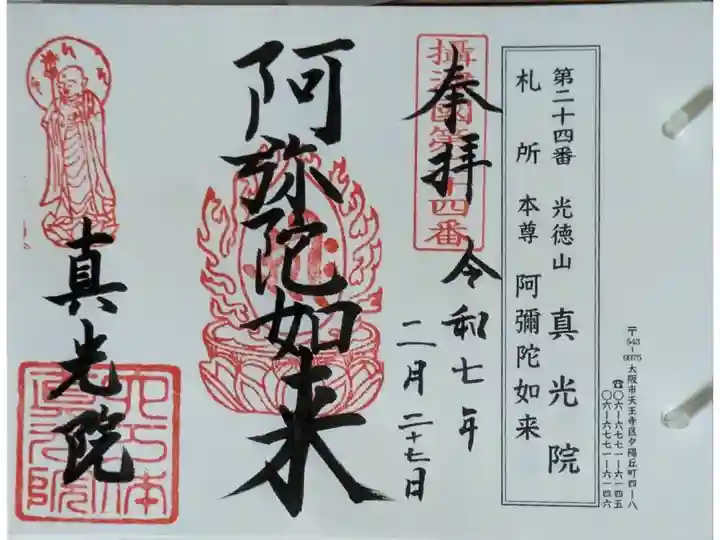 第二十四番 光徳山 真光院
札所本尊 阿彌陀如来
〒543-0075 大阪市天王寺区夕陽丘町四-八
☎〇六-六七七一-六一四五
〇六-六七七一-六一四六
攝津國第 十四番
奉拝 令和七年
二月二十七日
阿弥陀如来
真光院